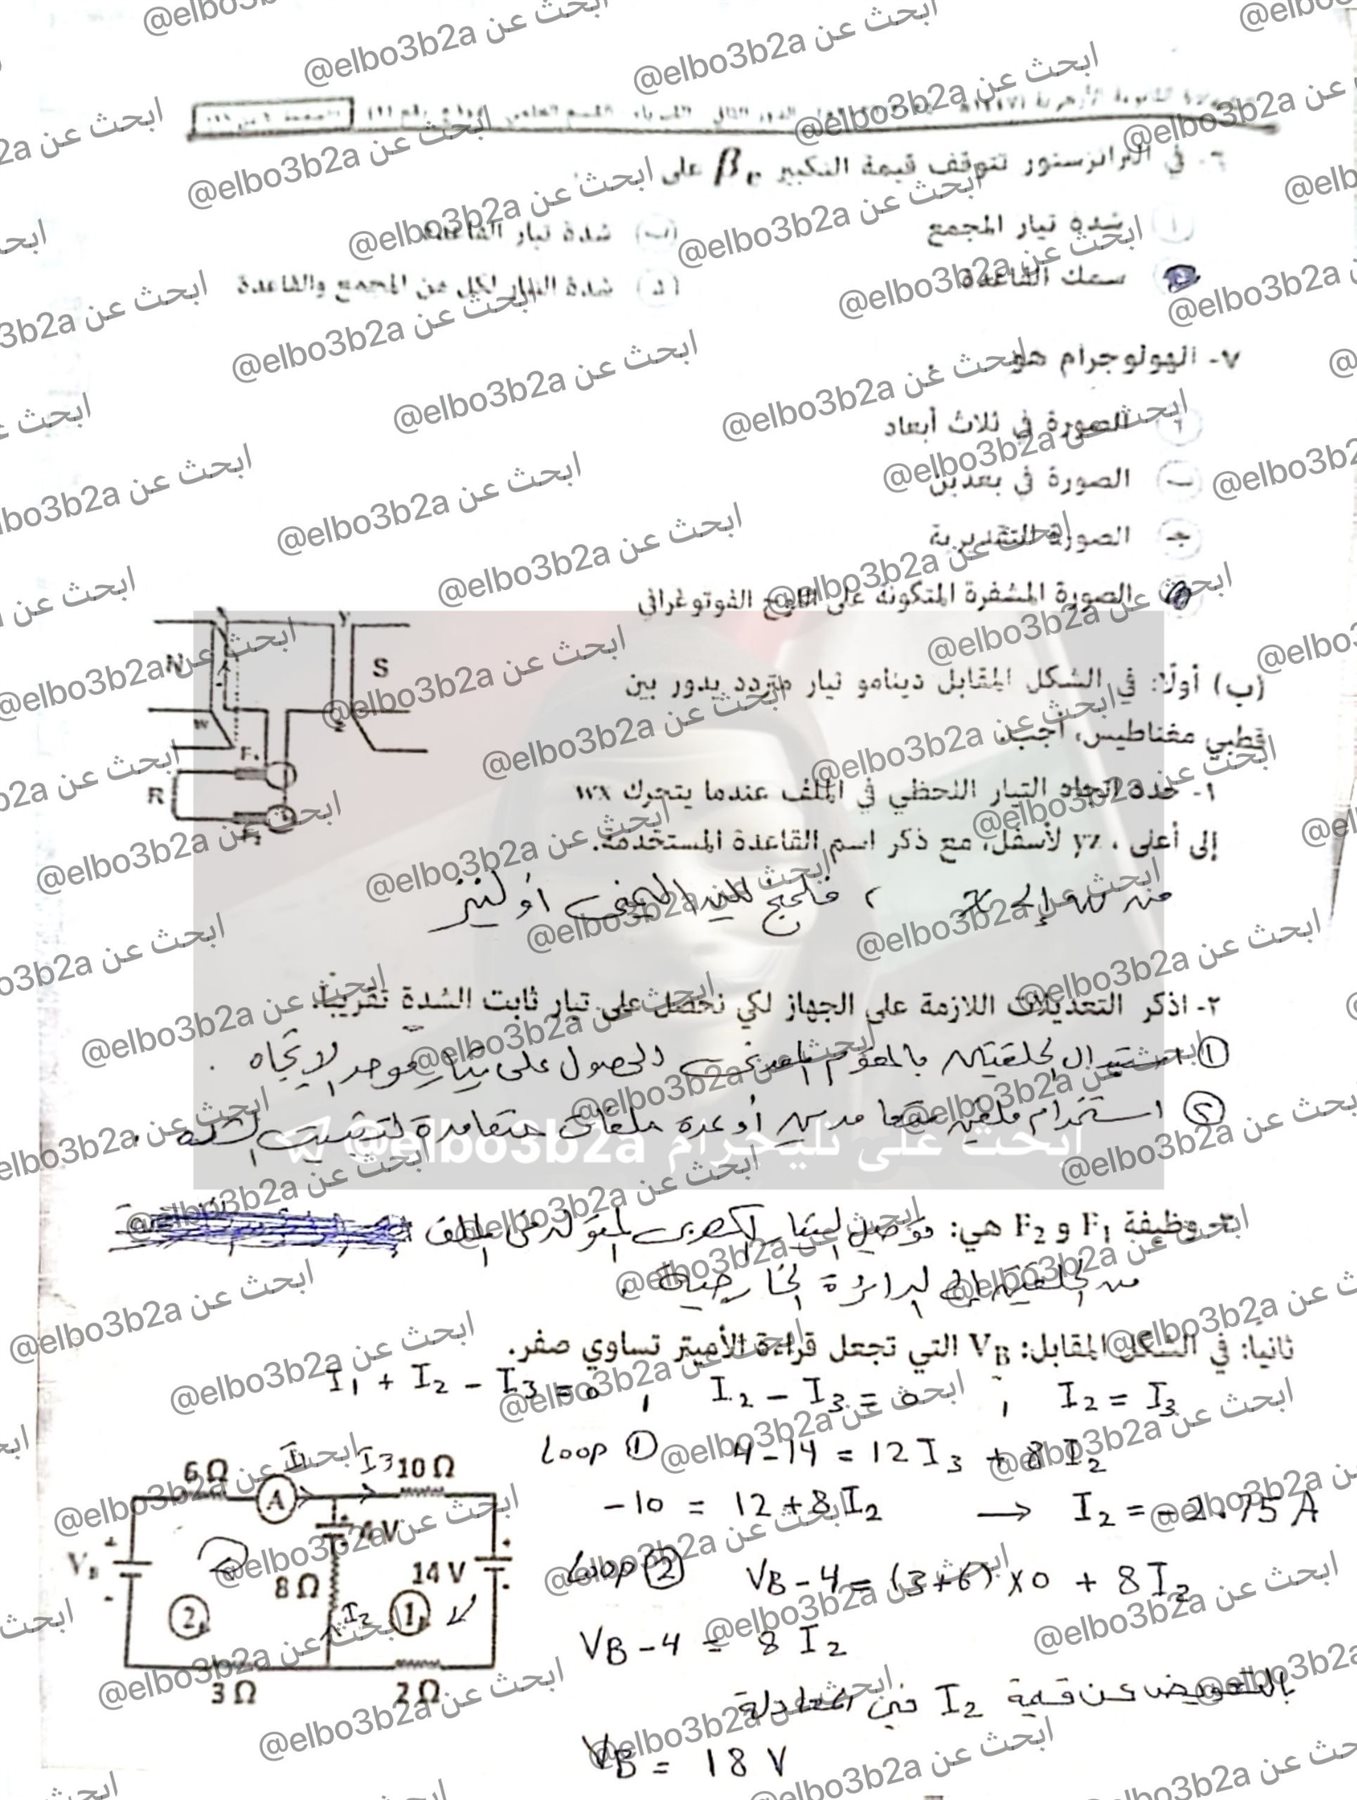 ٦- في الترانزستور تتوقف قيمة التكبير βe على
أ شدة تيار المجمع
ب شدة تيار القاعدة
سمك القاعدة
د شدة التيار لكل من المجمع والقاعدة
٧- الهولوجرام هو
أ الصورة في ثلاث أبعاد
ب الصورة في بعدين
جـ الصورة التقديرية
الصورة المشفرة المتكونة على اللوح الفوتوغرافي
(ب) أولًا: في الشكل المقابل دينامو تيار متردد يدور بين
قطبي مغناطيس، أجب:
١- حدد اتجاه التيار اللحظي في الملف عندما يتحرك wx
إلى أعلى ، yz لأسفل، مع ذكر اسم القاعدة المستخدمة.
N
Y
S
W
F₁
R
F₂
من w إلى x ، فلمنج لليد اليمنى أو لنز
٢- اذكر التعديلات اللازمة على الجهاز لكي نحصل على تيار ثابت الشدة تقريبًا.
① استبدال الحلقتين بالمقوم المعدني للحصول على تيار موحد الاتجاه .
② استخدام ملفين متعامدين أو عدة ملفات متعامدة لتثبيت الشدة .
٣- وظيفة F₁ و F₂ هي: توصيل التيار الكهربى المتولد فى الملف
من الحلقتين إلى الدائرة الخارجية .
ثانيًا: في الشكل المقابل: VB التي تجعل قراءة الأميتر تساوي صفر.
I₁ + I₂ - I₃ = 0 , I₂ - I₃ = 0 , I₂ = I₃
Loop ① 4 - 14 = 12 I₃ + 8 I₂
-10 = 12 + 8 I₂ → I₂ = -2.75 A
Loop ② VB - 4 = (3+6) × 0 + 8 I₂
VB - 4 = 8 I₂
بالتعويض عن قيمة I₂ في المعادلة
VB = 18 V
6Ω
I₁
I₃
10Ω
A
VB
4 V
8Ω
14 V
②
I₂
①
3Ω
2Ω
ابحث على تليجرام @elbo3b2a
ابحث عن @elbo3b2a